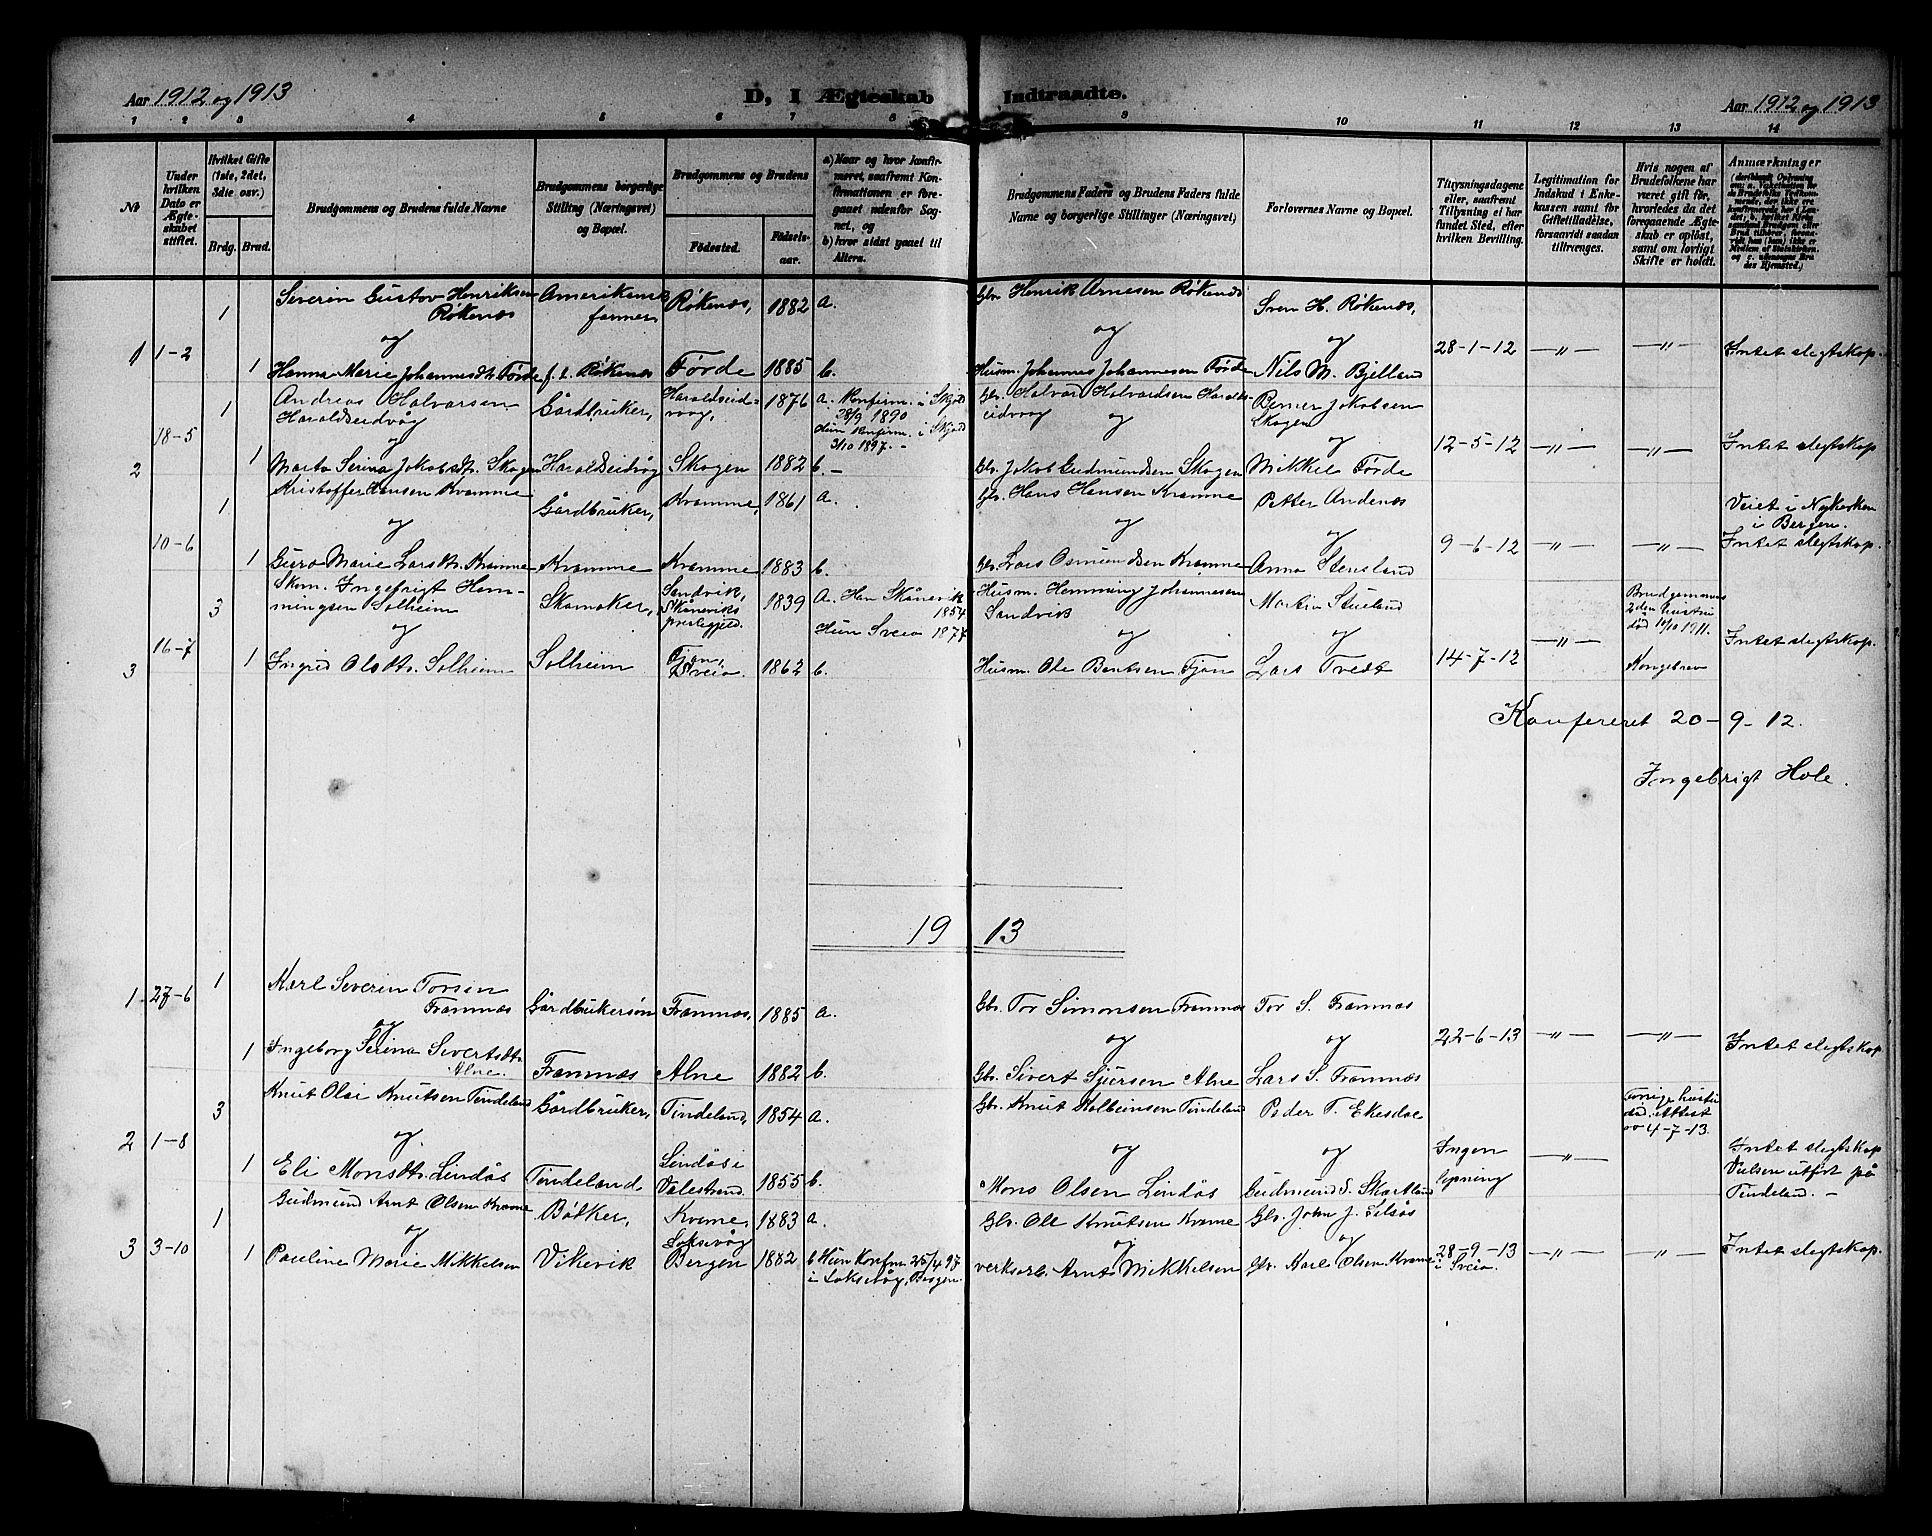 Aar 1912 og 1913
D, I Ægteskab Indtraadte.
Aar 1912 og 1913
1 2 3 4 5 6 7 8 9 10 11 12 13 14
No
Under hvilken Dato er Ægteskabet stiftet.
Hvilket Gifte (1ste, 2det, 3die osv.)
Brdg. Brud.
Brudgommens og Brudens fulde Navne
Brudgommens borgerlige Stilling (Næringsvei) og Bopæl.
Brudgommens og Brudens
Fødested.
Fødselsaar.
a) Naar og hvor konfirmeret, saafremt Konfirmationen er foregaaet udenfor Sognet, og
b) hvor sidst gaaet til Alters.
Brudgommens Faders og Brudens Faders fulde Navne og borgerlige Stillinger (Næringsvei)
Forlovernes Navne og Bopæl.
Tillysningsdagene eller, saafremt Tillysning ei har fundet Sted, efter hvilken Bevilling.
Legitimation for Indskud i Enkekassen samt for Giftetilladelse, forsaavidt saadan tiltrænges.
Hvis nogen af Brudefolkene har været gift før, hvorledes da det foregaaende Ægteskab er opløst, samt om lovligt Skifte er holdt.
Anmærkninger
1 Severin Gustav Henriksen Amerikansk Røkenæs, 1882 a. Gbr. Henrik Arnesen Røkenæs Sven H. Røkenæs,
Røkenæs farmer
og og og
1 1-2 28-1-12 —"— —"— Intet slegtskap.
1 Hanna Marie Johannesdt. Førde f. t. Røkenæs Førde 1885 b. Husm. Johannes Johannesen Førde Nils M. Bjelland
1 Andreas Halvarsen Gårdbruker, Haraldseidvåg, 1876 a. Konfirm. i Skjold 28/9 1890 Gbr. Halvard Halvardsen Haraldseidvåg Berner Jakobsen Skogen
Haraldseidvåg Hun konfirm. i Skjold 3/10 1897.-
18-5 og og og 12-5-12 —"— —"— Intet slegtskap
2 1 Marta Serina Jakobsdt. Skogen Haraldseidvåg Skogen 1882 b.- Gbr. Jakob Gudmundsen Skogen Mikkel Førde
1 Kristoffer Hansen Kvamme Gårdbruker, Kvamme, 1861 a. Gbr. Hans Hansen Kvamme Petter Andenæs Veiet i Nykirken i Bergen.
og og og
10-6 9-6-12 —"— —"— Intet slegtskap.
1 Guro Marie Larsdt. Kvamme Kvamme Kvamme 1883 b. Gbr. Lars Osmundsen Kvamme Anna Stensland
3 Skom. Ingefrigt Hemmingsen Solheim Skomaker, Sandvik, Skåneviks prestegjeld. 1839 a. Han Skånevik 1854 Hun Sveio 1877 Husm. Hemming Johannesen Sandvik Martin Stueland Brudgommens 2den hustru død 10/10 1911.
og og og
16-7 14-7-12 —"— Kongebrev Intet slegtskap.
3 1 Ingrid Olsdtr. Solheim Solheim Tjøn, Sveio. 1862 b. Husm. Ole Bentsen Tjøn Lars Tvedt
Konfereret 20-9-12.
Ingebrigt Hole.
1913
1 27-6 1 Karl Severin Torsen Framnæs Gårdbrukersøn Framnæs, 1885 a. Gbr. Tor Simonsen Framnæs Tor S. Framnæs
og og og 22-6-13 —"— —"— Intet slegtskap
1 Ingeborg Serina Sivertsdt. Alne. Framnæs Alne 1882 b. Gbr. Sivert Sjursen Alne Lars S. Framnæs
3 Knut Olai Knutsen Tindeland Gårdbruker, Tindeland, 1854 a. Gbr. Knut Kolbeinsen Tindeland Peder T. Ekesdal Forrige hustru død. Attest av 4-7-13.
2 1-8 og og og Ingen lysning —"— Intet slegtskap Vielsen utført på Tindeland.-
1 Eli Monsdt. Lindås Tindeland Lindås i Valestrand. 1855 b. Mons Olsen Lindås Gudmund S. Skartland
1 Gudmund Arnt Olsen Kvame Bøtker, Kvame, 1883 a. Gbr. Ole Knutsen Kvame Gbr. John J. Silsås
og og og
3 3-10 1 Pauline Marie Mikkelsen Vikevik Laksevåg Bergen 1882 b Hun konfirm 25/4 97 i Laksevåg, Bergen verksarb. Arnt Mikkelsen Gbr. Karl Olsen Kvame 28-9-13 i Sveio. —"— —"— Intet slegtskap.